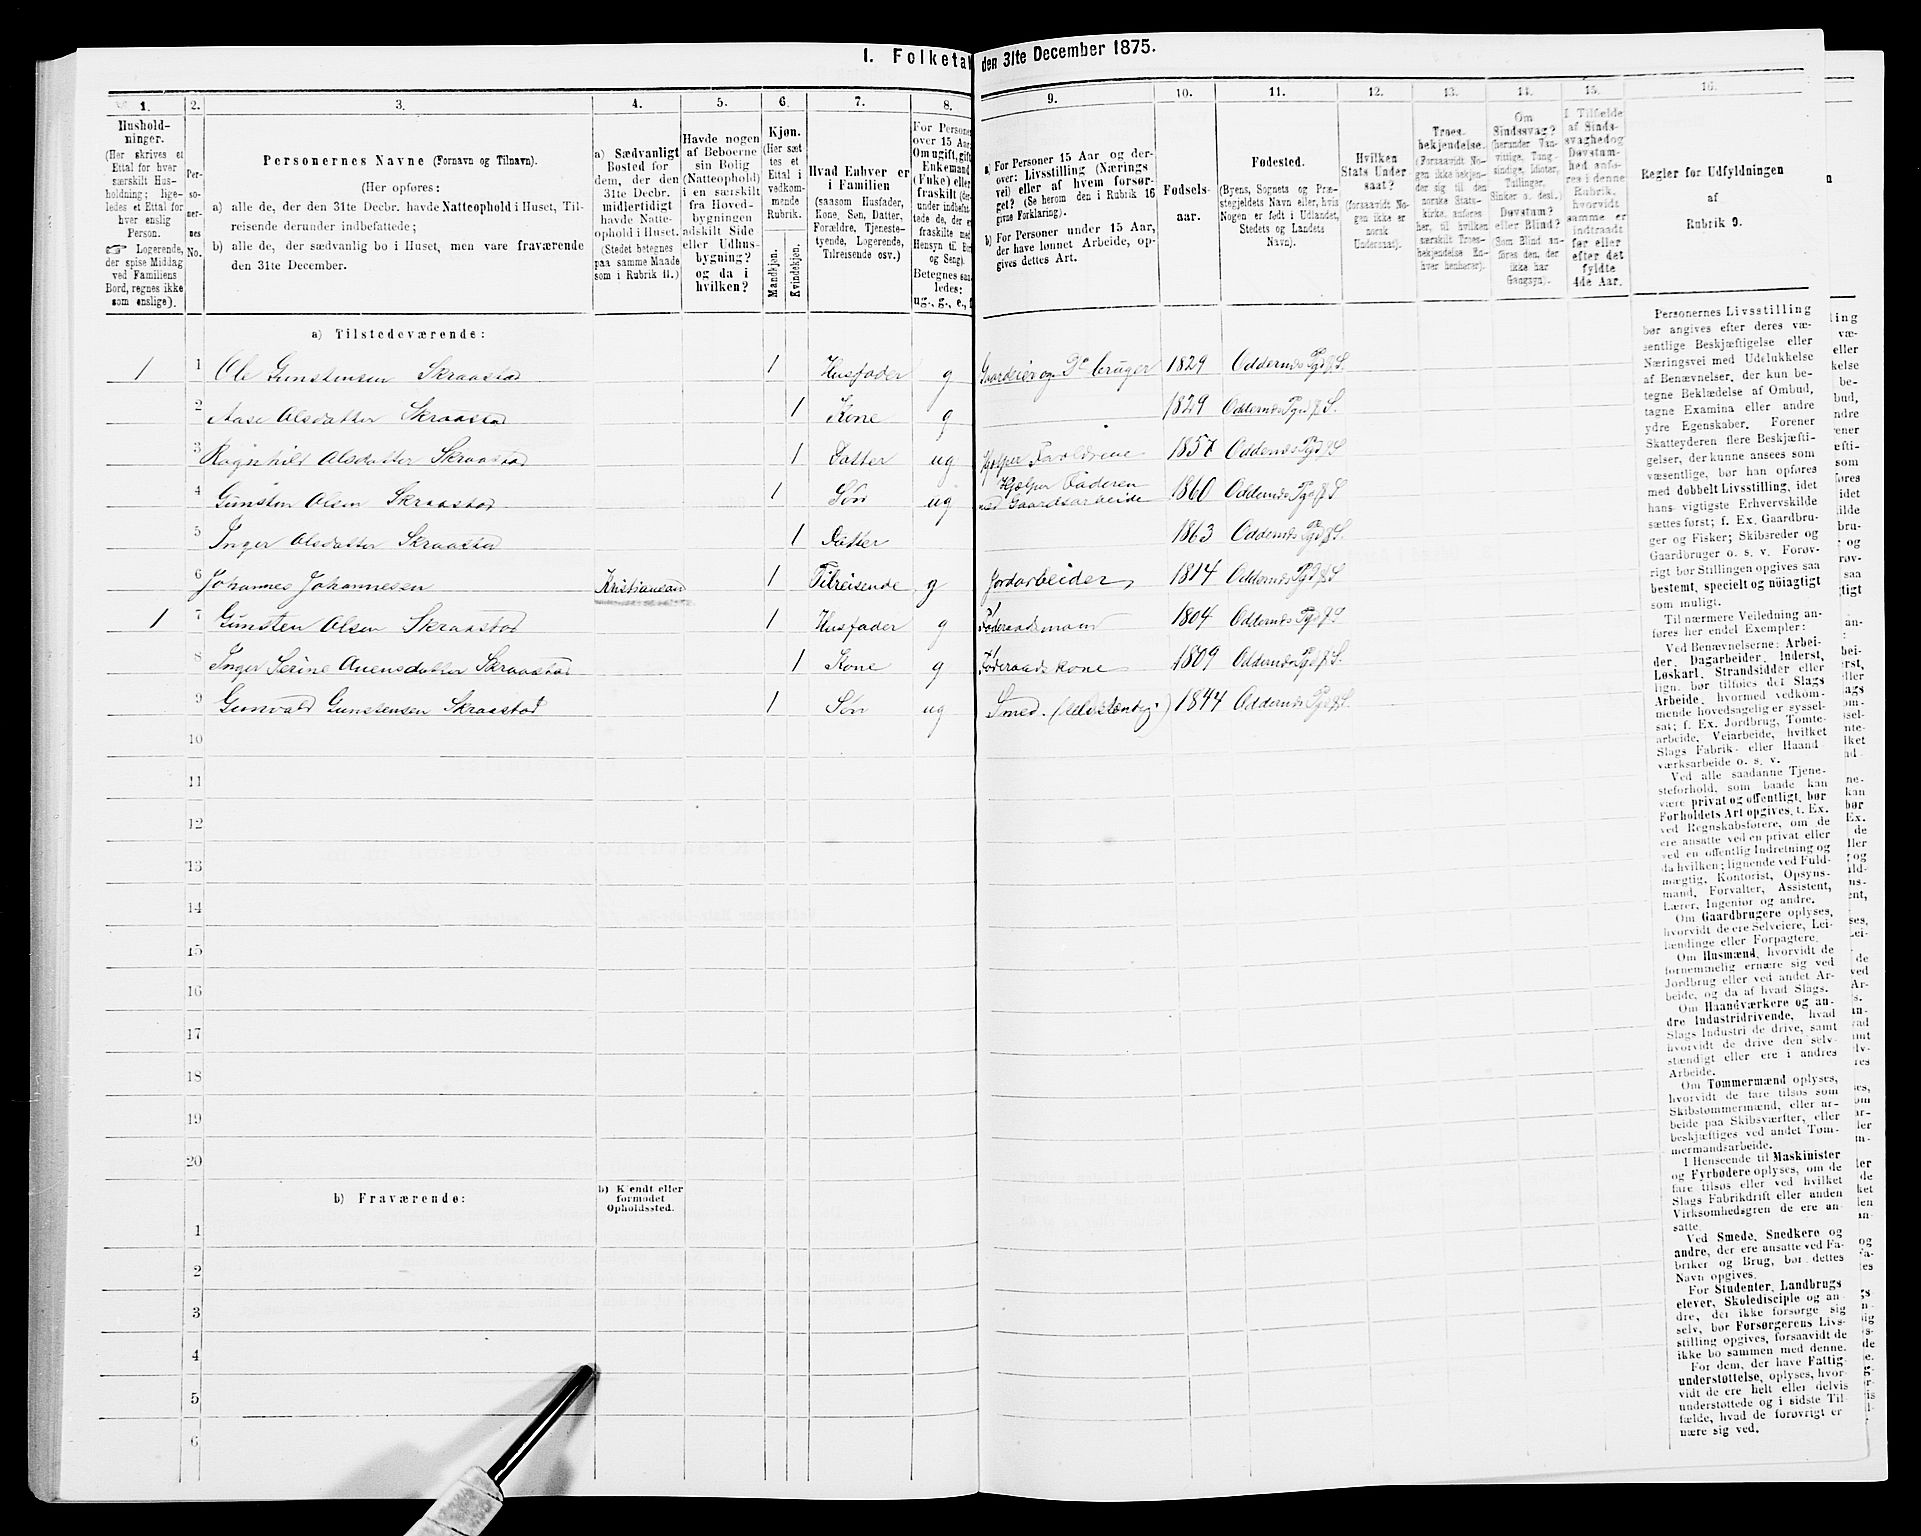 1. Folketal
den 31te December 1875.
1.
2.
3.
4.
5.
6.
7.
8.
9.
10.
11.
12.
13.
14.
15.
16.
Hushold-
ninger.
(Her skrives et
Ettal for hver
særskilt Hus-
holdning; lige-
ledes et Ettal for
hver enslig
Person.
☞ Logerende,
der spise Middag
ved Familiens
Bord, regnes ikke
som enslige).
Per-
so-
ner-
nes
No.
Personernes Navne (Fornavn og Tilnavn).
(Her opføres:
a) alle de, der den 31te Decbr. havde Natteophold i Huset, Til-
reisende derunder indbefattede;
b) alle de, der sædvanlig bo i Huset, men vare fraværende
den 31te December.
a) Sædvanligt
Bosted for
dem, der den
31te Decbr.
midlertidigt
havde Natte-
ophold i Huset.
(Stedet betegnes
paa samme Maade
som i Rubrik 11.)
Havde nogen
af Beboerne
sin Bolig
(Natteophold)
i en særskilt
fra Hoved-
bygningen
adskilt Side
eller Udhus-
bygning?
og da i
hvilken?
Kjøn.
(Her sæt-
tes et
Ettal i
vedkom-
mende
Rubrik.
Mandkjøn.
Kvindekjøn.
Hvad Enhver er
i Familien
(saasom Husfader,
Kone, Søn, Datter,
Forældre, Tjeneste-
tyende, Logerende,
Tilreisende osv.)
For Personer
over 15 Aar:
Om ugift, gift,
Enkemand
(Enke) eller
fraskilt
Betegnes saa-
ledes:
ug., g., e., f.
a) For Personer 15 Aar og der-
over: Livsstilling (Nærings-
vei) eller af hvem forsør-
get? (Se herom den i Rubrik 16
givne Forklaring).
b) For Personer under 15 Aar,
der have lønnet Arbeide, op-
gives dettes Art.
Fødsels-
aar.
Fødested.
(Byens, Sognets og Præ-
stegjeldets Navn eller, hvis
Nogen er født i Udlandet,
Stedets og Landets
Navn).
Hvilken
Stats Under-
saat?
(forsaavidt No-
gen ikke er
norsk
Undersaat).
Troes-
bekjendelse.
(Forsaavidt No-
gen ikke bekjen-
der sig til den
norske Stats-
kirke, anføres
her, til hvilken
særskilt Troes-
bekjendelse En-
hver henhører).
Om
Sindssvag?
(herunder Van-
vittige, Tung-
sindige, Idioter,
Tullinger,
Sinker o. desl.)
Døvstum?
eller Blind?
(Som Blind an-
føres den, der
ikke har
Gangsyn).
I Tilfælde
af Sinds-
svaghed og
Døvstum-
hed anfø-
res i denne
Rubrik,
hvorvidt
samme er
indtraadt
før eller
efter det
fyldte
4de Aar.
Regler for Udfyldningen
af
Rubrik 9.
a) Tilstedeværende:
1 1 Ole Gunstensen Skraastad 1 Husfader g Gaardeier og Do bruger 1829 Oddernæs Pgd f. S.
2 Aase Olsdatter Skraastad 1 Kone g 1829 Oddernæs Pgd f. S.
3 Ragnhild Olsdatter Skraastad 1 Datter ug Hjelper Forældrene 1857 Oddernæs Pgd f. S.
4 Gunsten Olsen Skraastad 1 Søn ug Hjælper Faderen med Gaardsarbeide 1860 Oddernæs Pgd f. S.
5 Inger Olsdatter Skraastad 1 Datter 1863 Oddernæs Pgd f. S.
6 Johannes Johannessen Kristiansand 1 Tilreisende g Jordarbeider 1814 Oddernæs Pgd f. S.
1 7 Gunsten Olsen Skraastad 1 Husfader g Føderaadsmand 1804 Oddernæs Pgd f. S.
8 Inger Serine Auensdatter Skraastad 1 Kone g Føderaads kone 1809 Oddernæs Pgd f. S.
9 Gunvald Gunstensen Skraastad 1 Søn ug Smed. 1844 Oddernæs Pgd f. S.
10
11
12
13
14
15
16
17
18
19
20
b) Fraværende:
b) Kjendt eller
formodet
Opholdssted.
1
2
3
4
5
6
Personernes Livsstilling
bør angives efter deres væ-
sentlige Beskjæftigelse eller
Næringsvei med Udelukkelse
af Benævnelser, der kun be-
tegne Beklædelse af Ombud,
tagne Examina eller andre
ydre Egenskaber. Forener
Skatteyderen flere Beskjæfti-
gelser, der kunne ansees som
væsentlige, bør han opføres
med dobbelt Livsstilling, idet
hans vigtigste Erhvervskilde
sættes først; f. Ex. Gaardbru-
ger og Fisker; Skibsreder og
Gaardbruger o. s. v. Forøv-
rigt bør Stillingen opgives saa
bestemt, specielt og nøiagtigt
som muligt.
Til nærmere Veiledning an-
føres her endel Exempler:
Ved Benævnelserne: Arbei-
der, Dagarbeider, Inderst,
Løskarl, Strandsidder eller
lign. bør tilføies det Slags
Arbeide, hvormed vedkom-
mende hovedsagelig er syssel-
sat; f. Ex. Jordbrug, Tomte-
arbeide, Veiarbeide, hvilket
Slags Fabrik- eller Haand-
værksarbeide o. s. v.
Ved alle saadanne Tjene-
steforhold, som baade kan
være privat og offentligt, bør
Forholdets Art opgives, f. Ex.
ved Regnskabsførere, om de
ere ansatte ved en privat eller
ved en offentlig Indretning og
da hvilken; lignende ved Fuld-
mægtig, Kontorist, Opsyns-
mand, Forvalter, Assistent,
Lærer, Ingeniør og andre.
Om Gaardbrugere oplyses,
hvorvidt de ere Selveiere, Lei-
lændinge eller Forpagtere.
Om Husmænd, hvorvidt de
fornemmelig ernære sig ved
Jordbrug eller ved andet Ar-
beide, og da af hvad Slags.
Om Haandværkere og an-
dre Industridrivende, hvad
Slags Industri de drive, samt
hvorvidt de drive den selv-
stændigt eller ere i andres
Arbeide.
Om Tømmermænd oplyses,
hvorvidt de fare tilsøs som
Skibstømmermænd, eller ar-
beide paa Skibsværfter, eller
beskjæftiges ved andet Tøm-
mermandsarbeide.
I Henseende til Maskinister
og Fyrbødere oplyses, om de
fare tilsøs eller ved hvilket
Slags Fabrikdrift eller anden
Virksomhedsgren de ere an-
satte.
Ved Smede, Snedkere og
andre, der ere ansatte ved Fa-
briker og Brug, bør dettes
Navn opgives.
For Studenter, Landbrugs-
elever, Skoledisciple og an-
dre, der ikke forsørge sig
selv, bør Forsørgerens Livs-
stilling opgives, forsaavidt de
ikke bo sammen med denne.
For dem, der have Fattig-
understøttelse, oplyses, hvor-
vidt de ere helt eller delvis
understøttede og i sidste Til-
fælde, hvad de forøvrigt er-
nære sig ved.